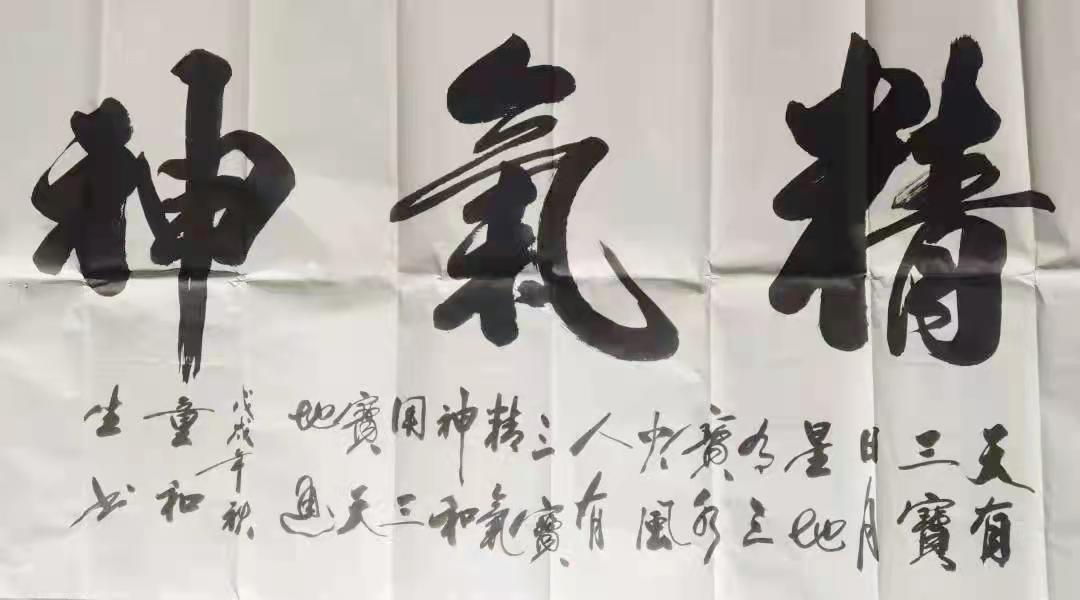 精氣神
天有
三寶
日月
星地
有三
寶水
火風
人有
三寶
精氣
神和
用三
寶天
地通
戊戌年秋
童和
生书